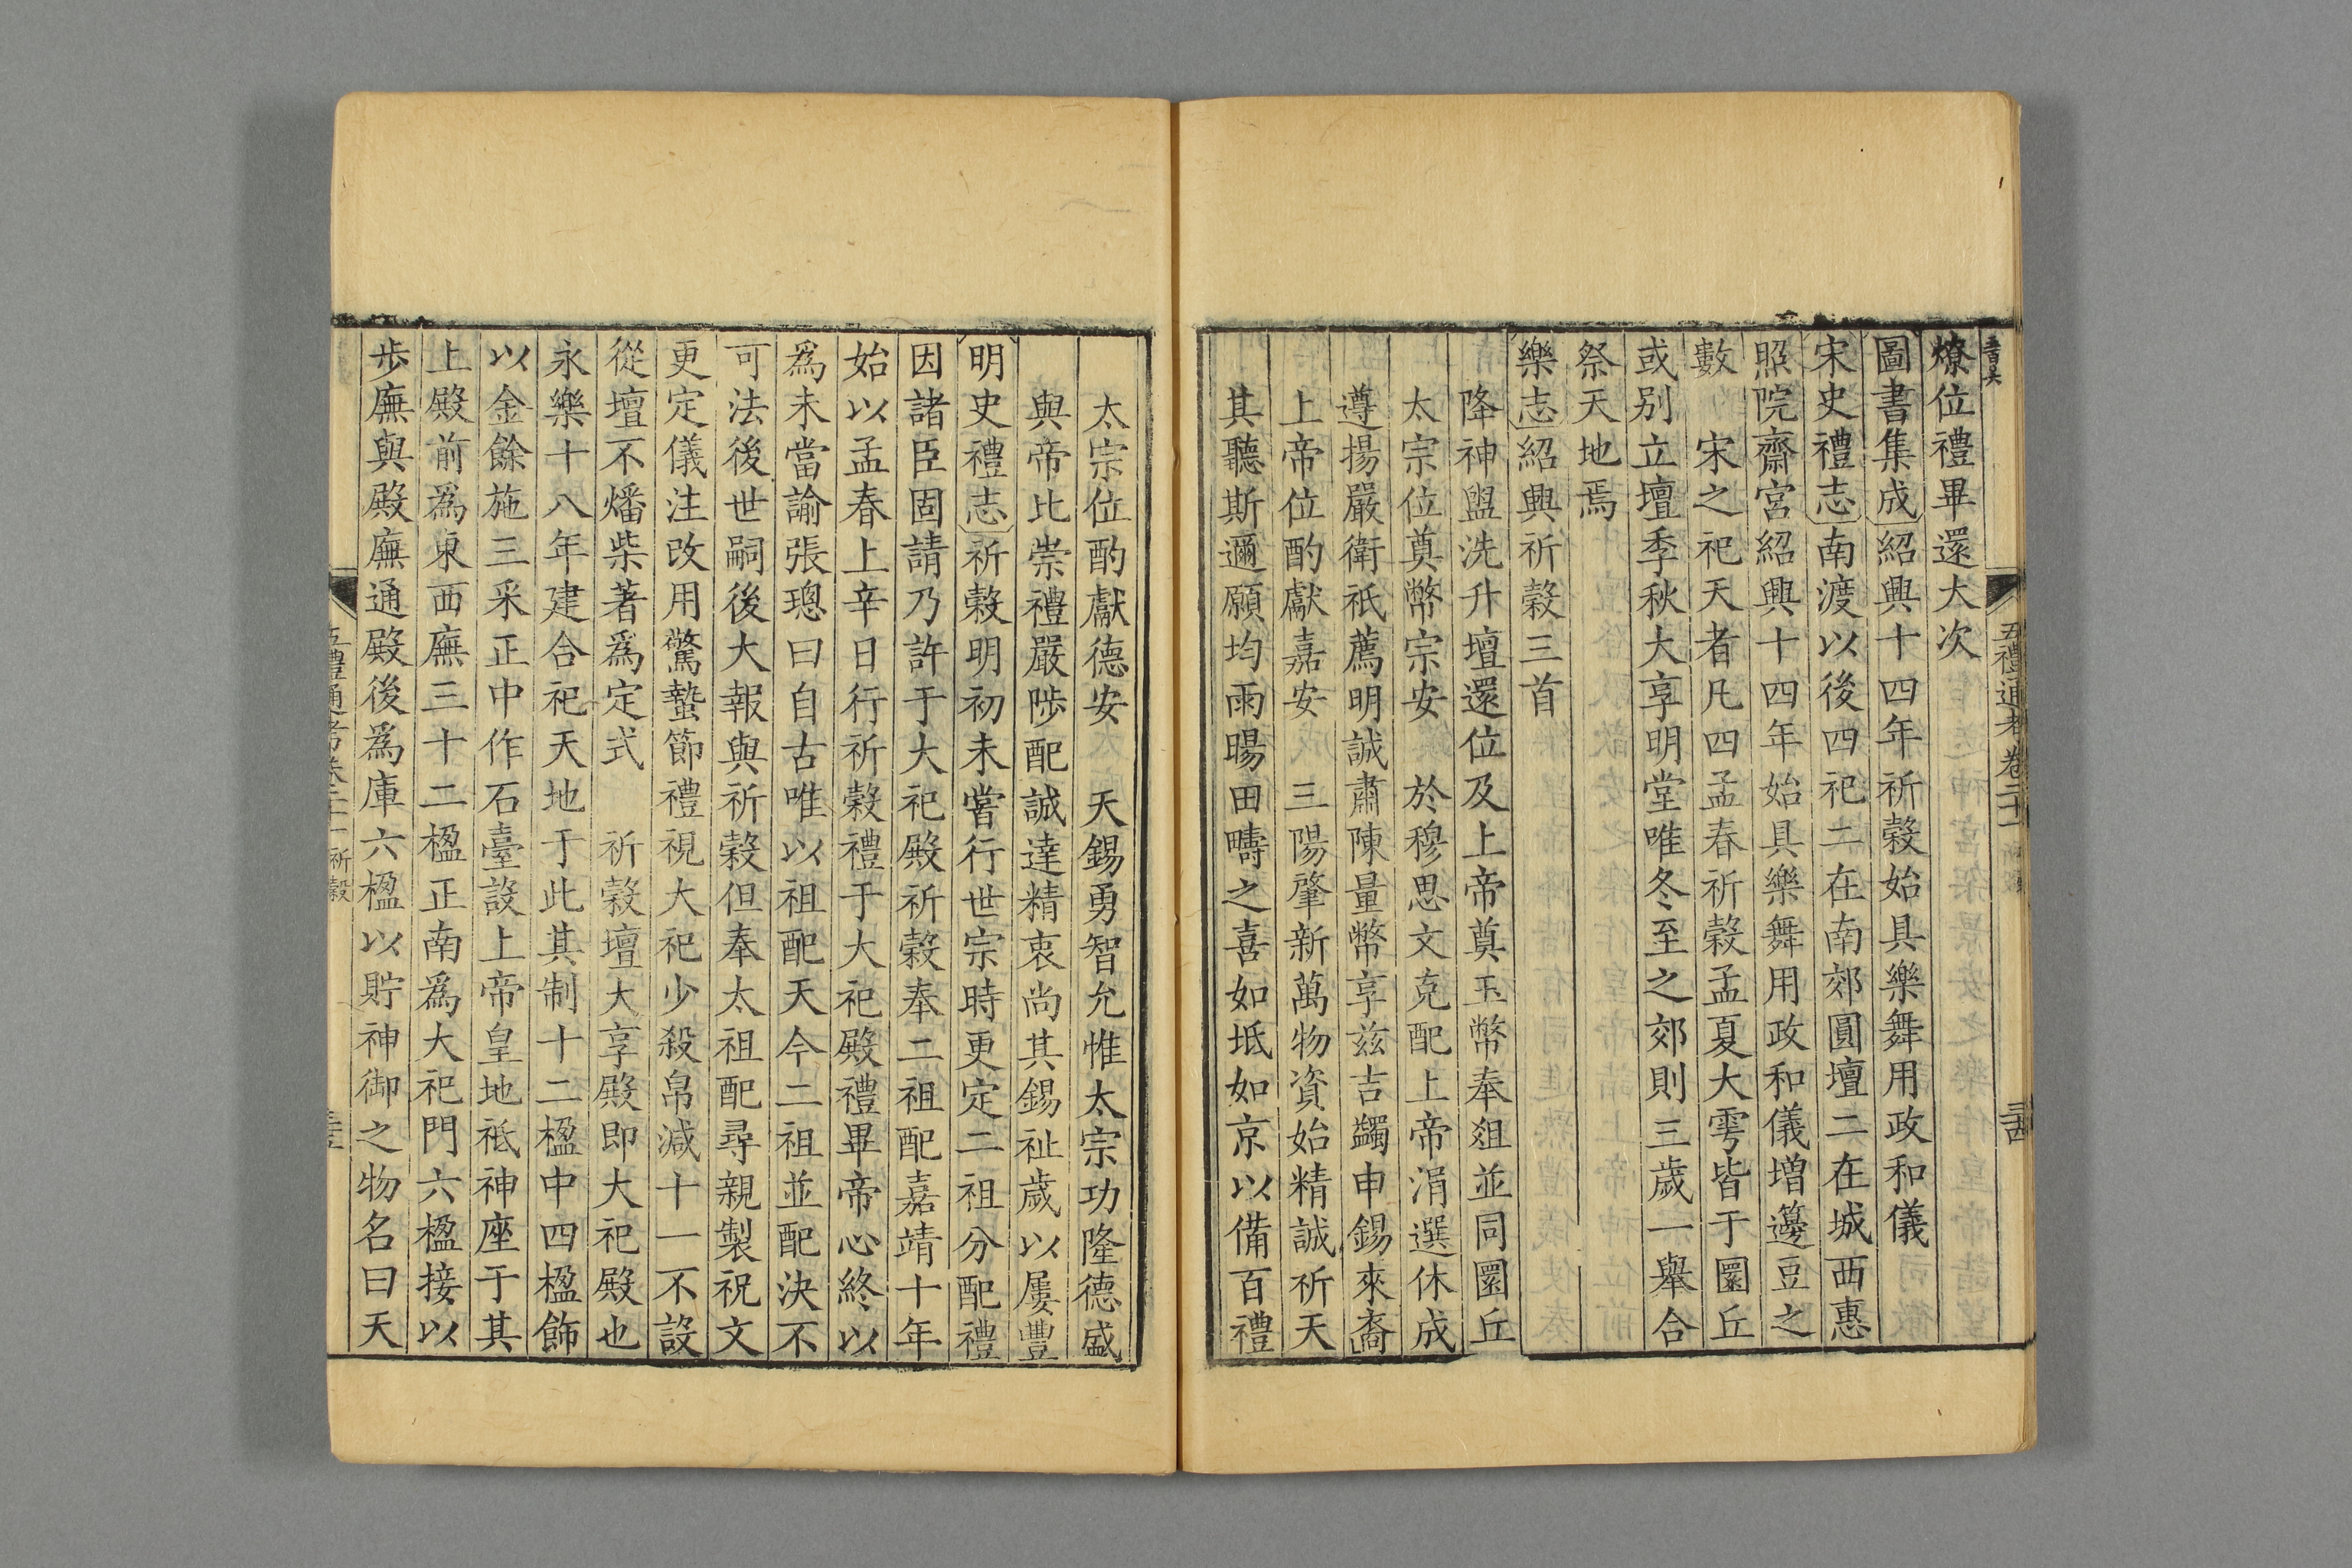 五禮通考卷二十一
燎位禮畢還大次
圖書集成紹興十四年祈穀始具樂舞用政和儀
宋史禮志南渡以後四祀二在南郊圓壇二在城西惠
照院齋宮紹興十四年始具樂舞用政和儀增籩豆之
數　宋之祀天者凡四孟春祈穀孟夏大雩皆于圜丘
或别立壇季秋大享明堂唯冬至之郊則三歲一舉合
祭天地焉
樂志紹興祈穀三首
降神盥洗升壇還位及上帝奠玉幣奉俎並同圜丘
太宗位奠幣宗安　於穆思文克配上帝涓選休成
遵揚嚴衛祇薦明誠肅陳量幣享兹吉蠲申錫來裔
上帝位酌獻嘉安　三陽肇新萬物資始精誠祈天
其聽斯邇願均雨暘田疇之喜如坻如京以備百禮
太宗位酌獻德安　天錫勇智允惟太宗功隆德盛
與帝比崇禮嚴陟配誠達精衷尚其錫祉歲以屢豐
明史禮志祈穀明初未嘗行世宗時更定二祖分配禮
因諸臣固請乃許于大祀殿祈穀奉二祖配嘉靖十年
始以孟春上辛日行祈穀禮于大祀殿禮畢帝心終以
爲未當諭張璁曰自古唯以祖配天今二祖並配決不
可法後世嗣後大報與祈穀但奉太祖配尋親製祝文
更定儀注改用驚蟄節禮視大祀少殺帛減十一不設
從壇不燔柴著爲定式　祈穀壇大享殿即大祀殿也
永樂十八年建合祀天地于此其制十二楹中四楹飾
以金餘施三采正中作石臺設上帝皇地祇神座于其
上殿前爲東西廡三十二楹正南爲大祀門六楹接以
步廡與殿廡通殿後爲庫六楹以貯神御之物名曰天
五禮通考卷二十一 祈穀